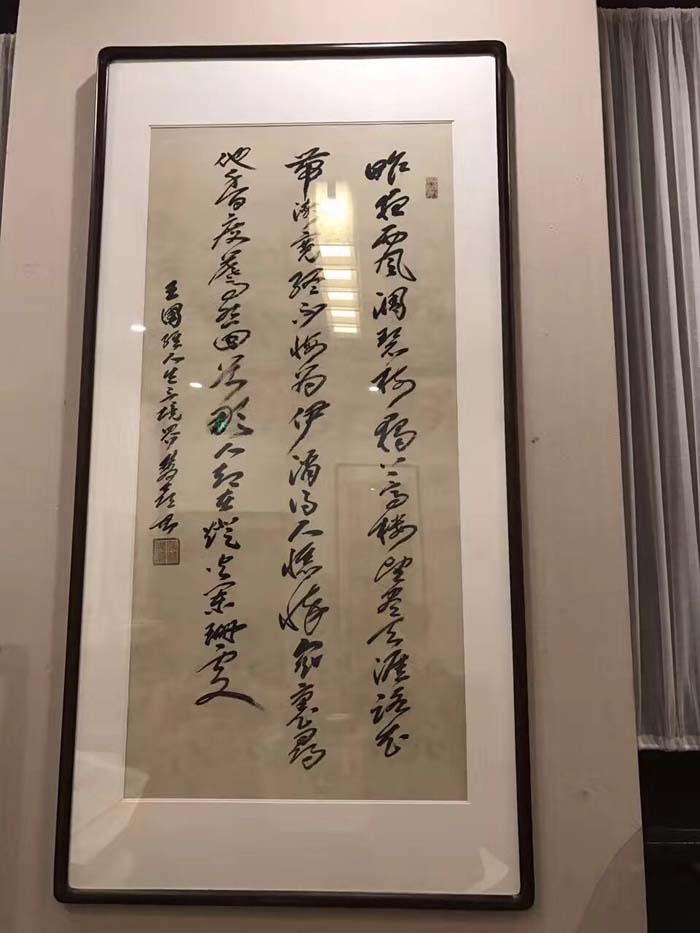 昨夜西風凋碧樹獨上高樓望盡天涯路衣
帶漸寬終不悔為伊消得人憔悴眾裏尋
他千百度驀然回首那人却在燈火闌珊處
王國維人生三境界